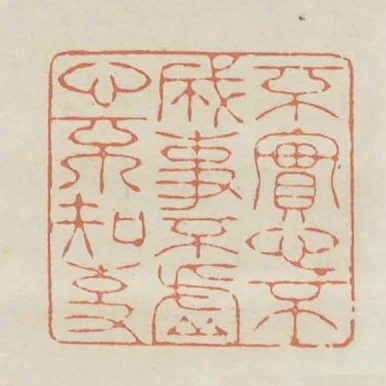 不實心不
成事不虛
心不知事